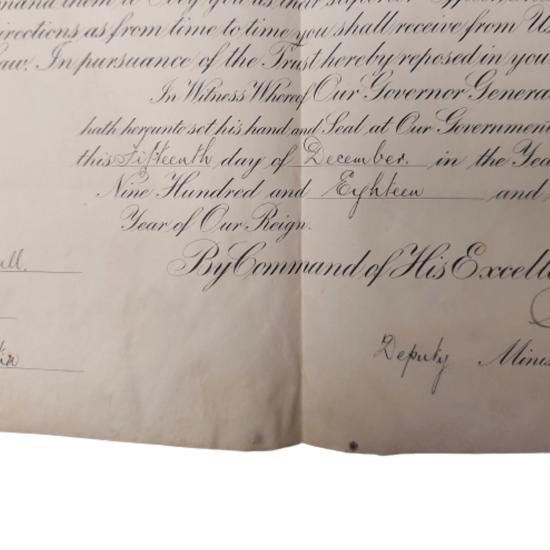 them to Obey you as their Superior
directions as from time to time you shall receive from Us
Law. In pursuance of the Trust hereby reposed in you
In Witness Whereof Our Governor General
hath hereunto set his hand and Seal at Our Government
this Fifteenth day of December. in the Yea
Nine Hundred and Eighteen and
Year of Our Reign.
By Command of His Excelle
ll.
Deputy Minis